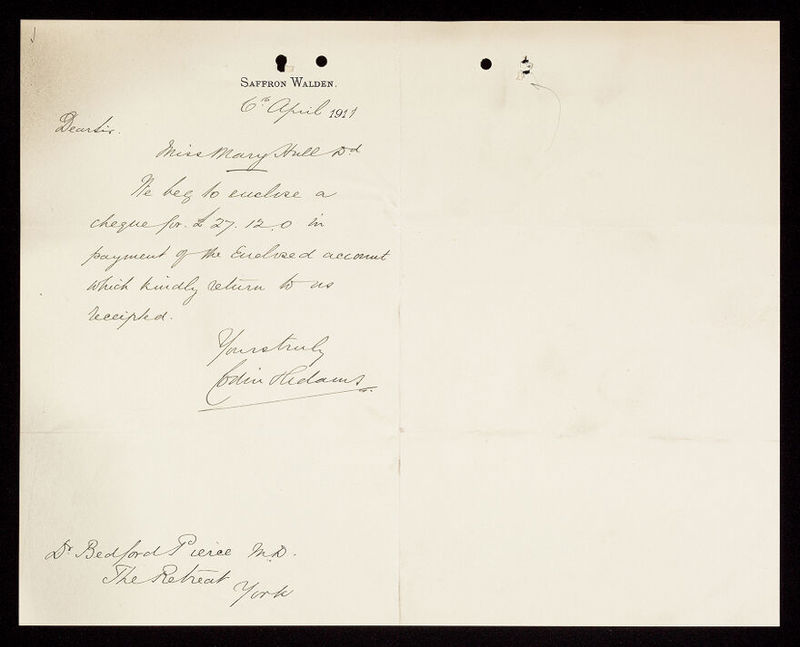 SAFFRON WALDEN.
6th April 1911
Dear Sir.
Miss Mary Hull Dd
We beg to enclose a
cheque for £27.12.0 in
payment of the Enclosed account
which kindly return to us
receipted.
Yours truly
Dr Bedford Pierce M.D.
The Retreat
York